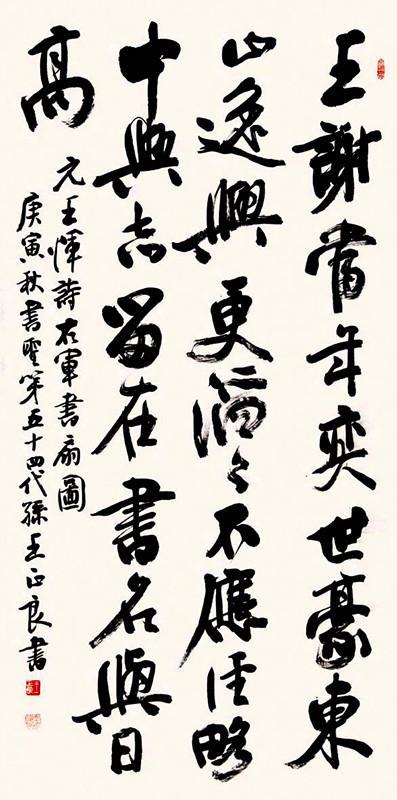 王謝當年奕世豪東
山逸興更滔々不應經略
中興志留在書名與日
高
元王惲詩右軍書扇圖
庚寅秋書聖第五十四代孫王正良書